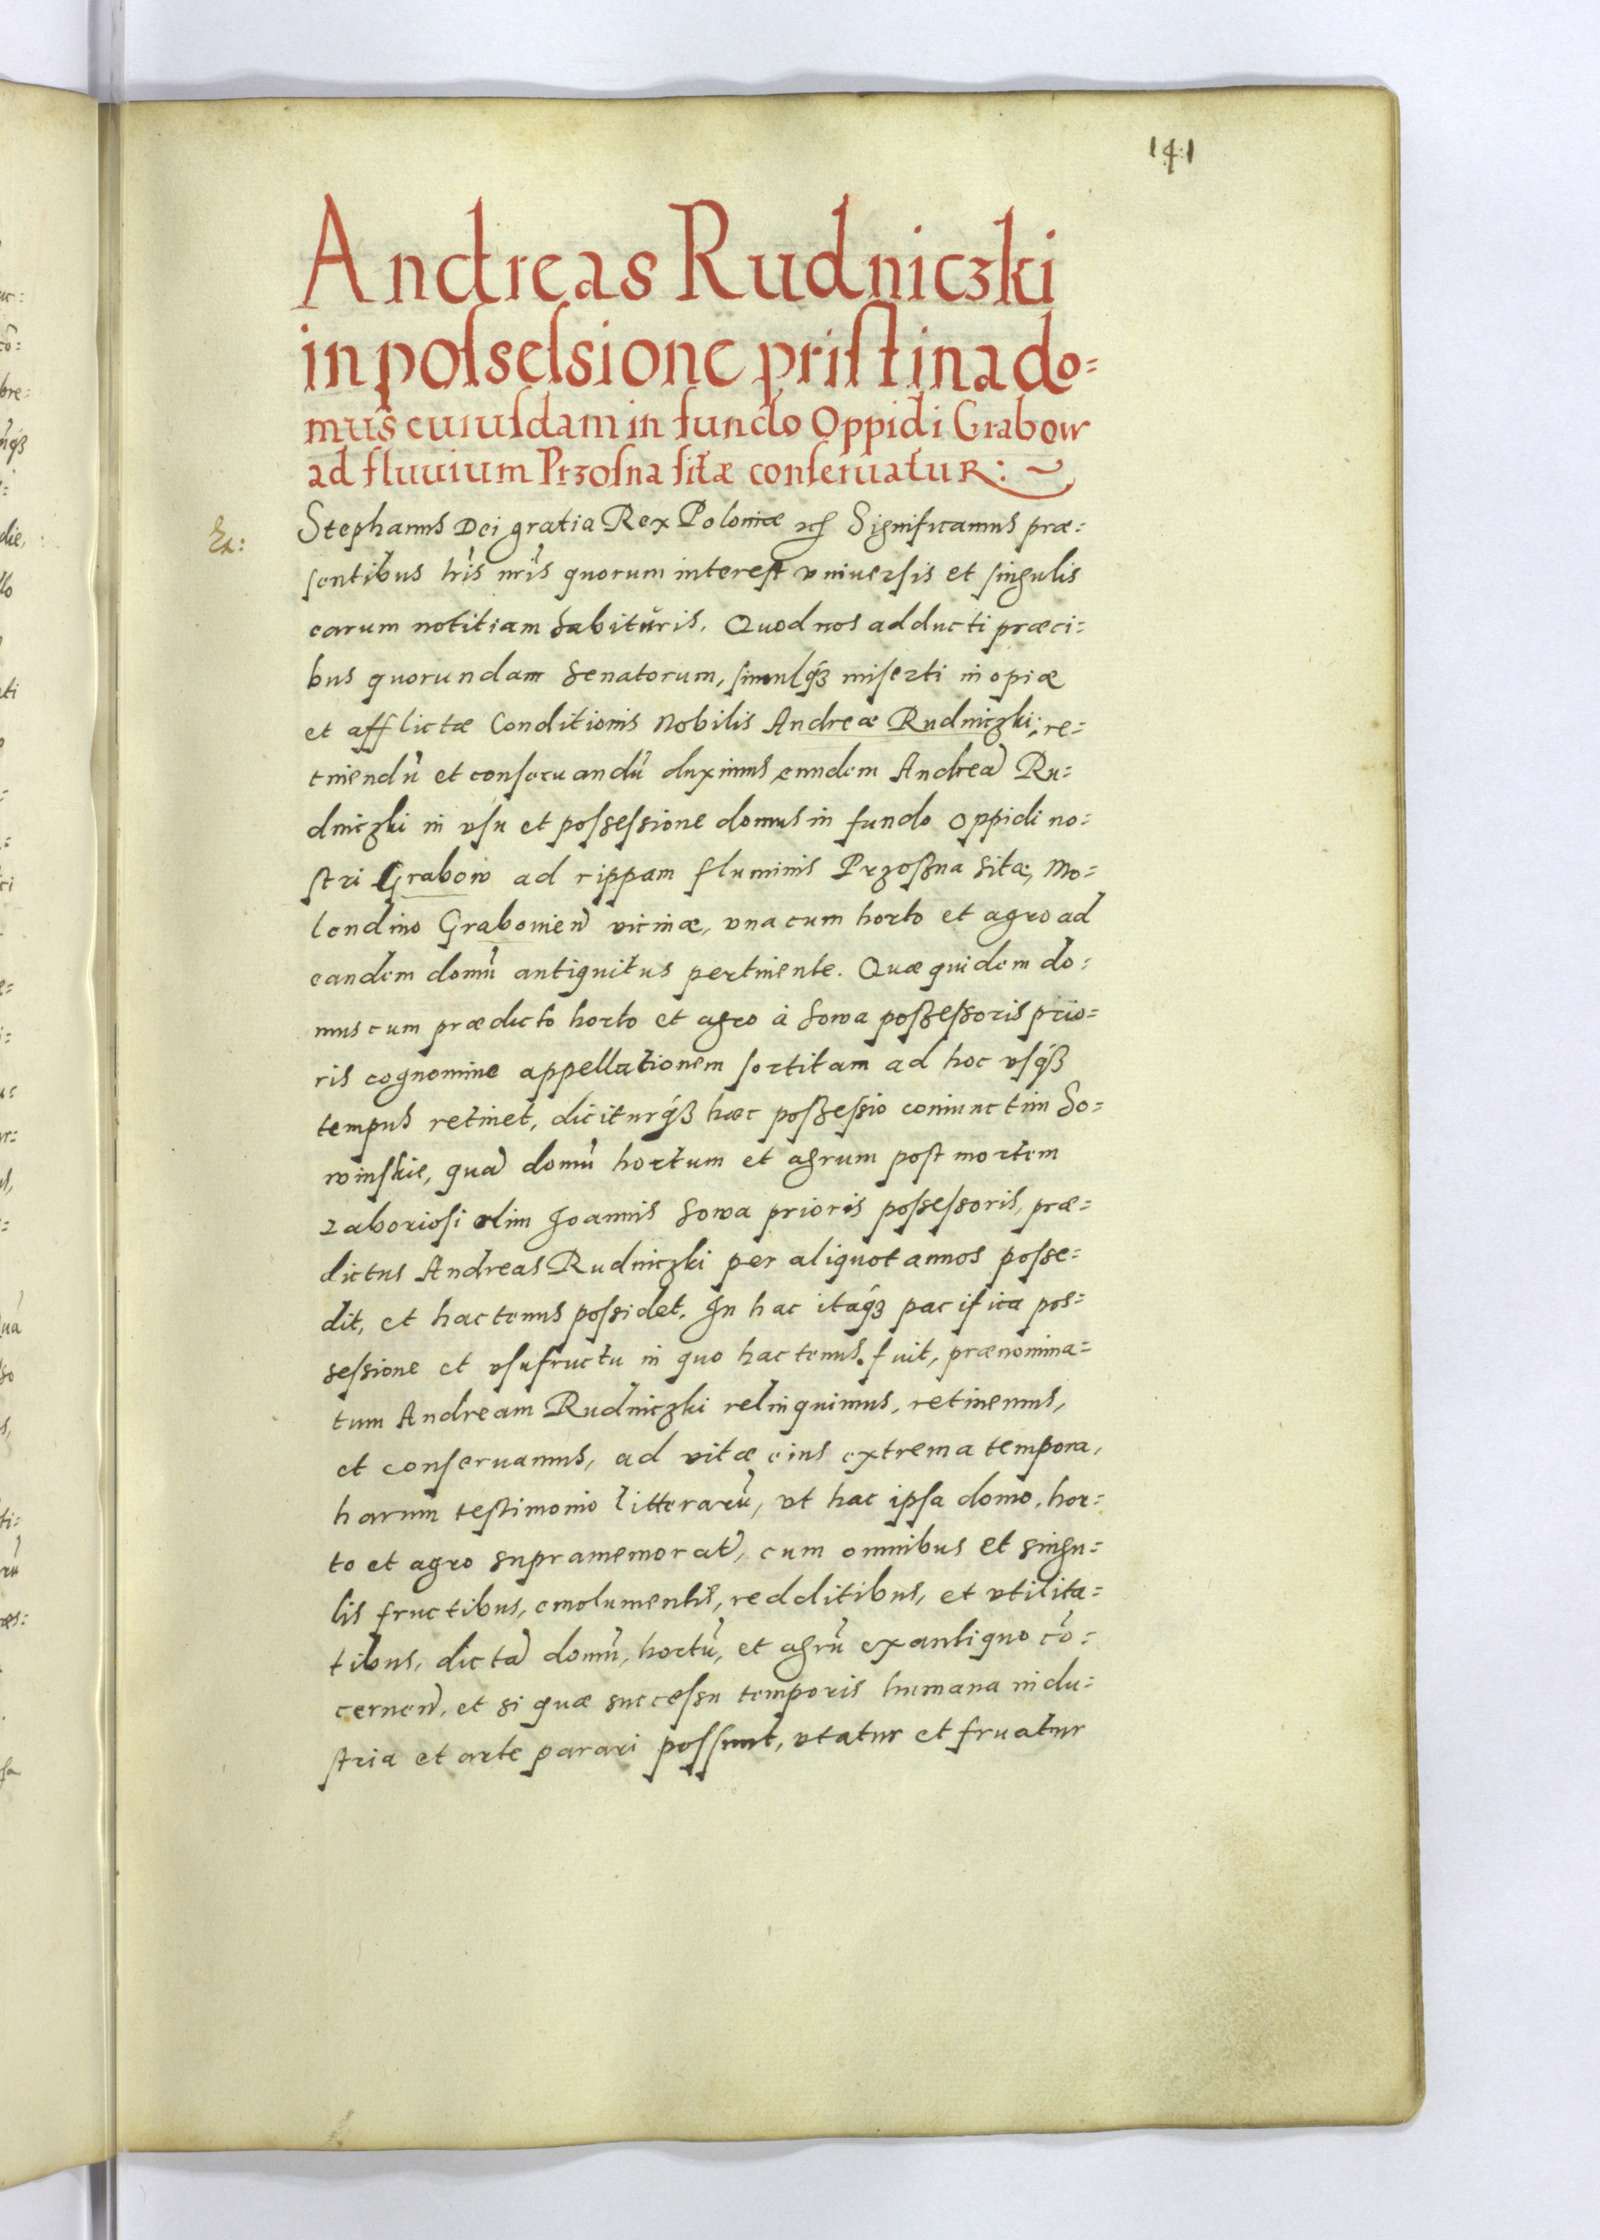 141
Andreas Rudniczki
in possessione pristina do=
mus cuiusdam in fundo Oppidi Grabow
ad fluuium Przosna sitæ conseruatur:
Ex:
Stephanus Dei gratia Rex Poloniæ etc Significamus præ=
sentibus lr̃is nr̃is quorum interest vniuersis et singulis
earum notitiam habituris. Quod nos adducti præci=
bus quorundam Senatorum, simulq́ꝫ miserti inopiæ
et afflictæ Conditionis Nobilis Andreæ Rudniczki, re=
tinendũ et conseruandũ duximus eundem Andreã Ru=
dniczki in vsu et possessione domus in fundo Oppidi no=
stri Grabow ad rippam fluminis Przoszna sitæ, Mo=
lendino Grabouien̄ vicinæ, vna cum horto et agro ad
eandem domũ antiquitus pertinente. Quæ quidem do=
mus cum prædicto horto et agro à Sowa possessoris prio=
ris cognomine appellationem sortitam ad hoc vsq́ꝫ
tempus retinet, diciturq́ꝫ hæc possessio coniunctim So=
winskie, quã domũ hortum et agrum post mortem
Laboriosi olim Joannis Sowa prioris possessoris, præ=
dictus Andreas Rudniczki per aliquot annos posse=
dit, et hactenus possidet. In hac itaq́ꝫ pacifica pos=
sessione et vsufructu in quo hactenus fuit, prænomina=
tum Andream Rudniczki relinquimus, retinemus,
et conseruamus, ad vitæ eius extrema tempora,
harum testimonio litterarũ, vt hac ipsa domo, hor=
to et agro supramemorat̃, cum omnibus et singu=
lis fructibus, emolumentis, redditibus, et vtilita=
tibus, dictã domũ, hortũ, et agrũ ex antiquo cõ=
cernen̄, et si quæ successu temporis humana indu=
stria et arte parari possunt, vtatur et fruatur